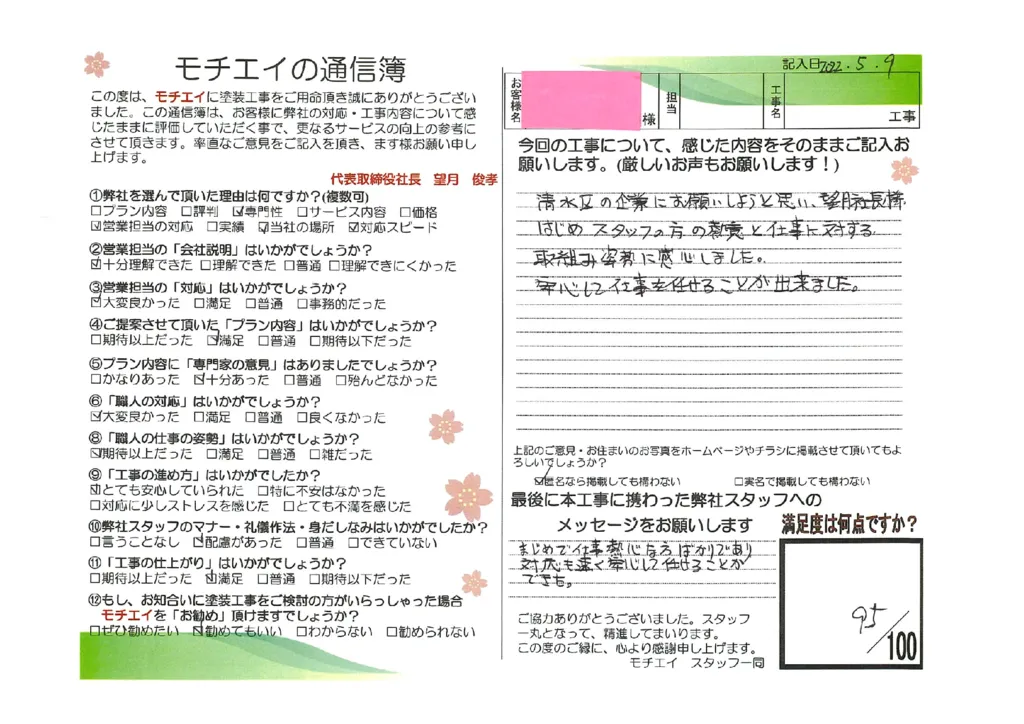 モチエイの通信簿
この度は、モチエイに塗装工事をご用命頂き誠にありがとうござい
ました。この通信簿は、お客様に弊社の対応・工事内容について感
じたままに評価していただく事で、更なるサービスの向上の参考に
させて頂きます。率直なご意見をご記入を頂き、ます様お願い申し
上げます。
代表取締役社長 望月 俊孝
①弊社を選んで頂いた理由は何ですか?(複数可)
□プラン内容 □評判 ☑専門性 □サービス内容 □価格
☑営業担当の対応 □実績 ☑当社の場所 ☑対応スピード
②営業担当の「会社説明」はいかがでしょうか?
☑十分理解できた □理解できた □普通 □理解できにくかった
③営業担当の「対応」はいかがでしょうか?
☑大変良かった □満足 □普通 □事務的だった
④ご提案させて頂いた「プラン内容」はいかがでしょうか?
□期待以上だった ☑満足 □普通 □期待以下だった
⑤プラン内容に「専門家の意見」はありましたでしょうか?
□かなりあった ☑十分あった □普通 □殆んどなかった
⑥「職人の対応」はいかがでしょうか?
☑大変良かった □満足 □普通 □良くなかった
⑧「職人の仕事の姿勢」はいかがでしょうか?
☑期待以上だった □満足 □普通 □雑だった
⑨「工事の進め方」はいかがでしたか?
☑とても安心していられた □特に不安はなかった
□対応に少しストレスを感じた □とても不満を感じた
⑩弊社スタッフのマナー・礼儀作法・身だしなみはいかがでしたか?
□言うことなし ☑配慮があった □普通 □できていない
⑪「工事の仕上がり」はいかがでしょうか?
□期待以上だった ☑満足 □普通 □期待以下だった
⑫もし、お知合いに塗装工事をご検討の方がいらっしゃった場合
モチエイを「お勧め」頂けますでしょうか?
□ぜひ勧めたい ☑勧めてもいい □わからない □勧められない
記入日2022.5.9
お客様名 様 担当 工事名 工事
今回の工事について、感じた内容をそのままご記入お
願いします。(厳しいお声もお願いします!)
清水区の企業にお願いしようと思い、望月社長様
はじめスタッフの方の熱意と仕事に対する
取組み姿勢に感心しました。
安心して仕事を任せることが出来ました。
上記のご意見・お住まいのお写真をホームページやチラシに掲載させて頂いてもよ
ろしいでしょうか?
☑匿名なら掲載しても構わない □実名で掲載しても構わない
最後に本工事に携わった弊社スタッフへの
メッセージをお願いします
まじめで仕事熱心な方ばかりであり
対応も速く安心して任せることが
できた。
満足度は何点ですか?
95/100
ご協力ありがとうございました。スタッフ
一丸となって、精進してまいります。
この度のご縁に、心より感謝申し上げます。
モチエイ スタッフ一同